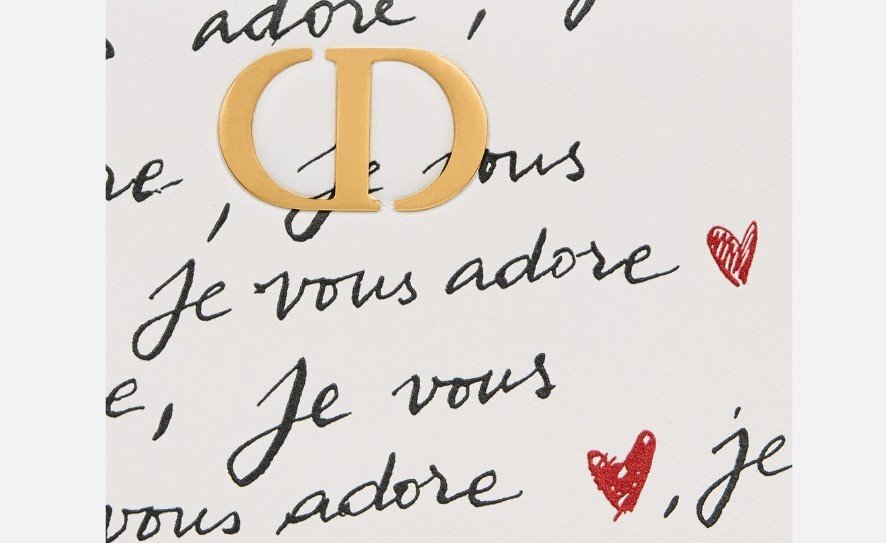 adore,
CD
re, je vous
je vous adore
e, Je vous
vous adore, je